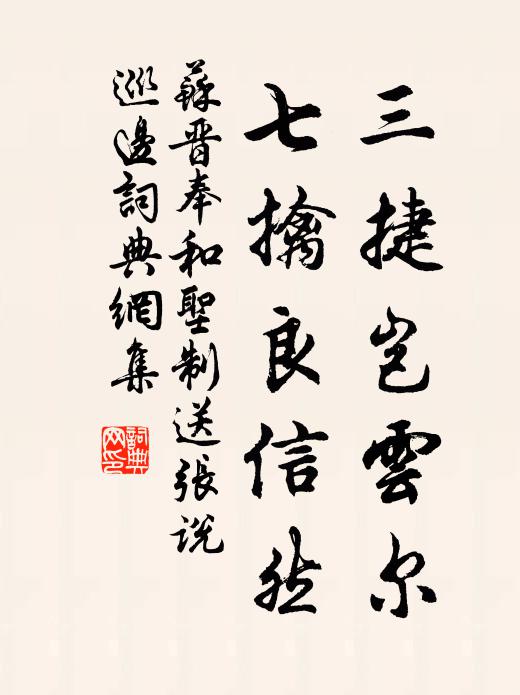 三捷岂雲尔
七擒良信然
蘇晋奉和聖制送張说
巡邊詞典網集
詞典
网印